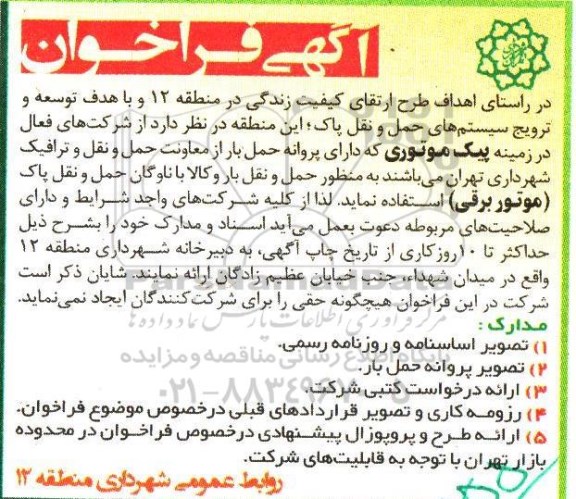 آگهی فراخوان
در راستای اهداف طرح ارتقای کیفیت زندگی در منطقه ۱۲ و با هدف توسعه و
ترویج سیستم‌های حمل و نقل پاک؛ این منطقه در نظر دارد از شرکت‌های فعال
در زمینه پیک موتوری که دارای پروانه حمل بار از معاونت حمل و نقل و ترافیک
شهرداری تهران می‌باشند به منظور حمل و نقل بار و کالا با ناوگان حمل و نقل پاک
(موتور برقی) استفاده نماید. لذا از کلیه شرکت‌های واجد شرایط و دارای
صلاحیت‌های مربوطه دعوت بعمل می‌آید اسناد و مدارک خود را بشرح ذیل
حداکثر تا ۱۰روزکاری از تاریخ چاپ آگهی، به دبیرخانه شهرداری منطقه ۱۲
واقع در میدان شهداء، جنب خیابان عظیم زادگان ارائه نمایند. شایان ذکر است
ParsNamadData
شرکت در این فراخوان هیچگونه حقی را برای شرکت‌کنندگان ایجاد نمی‌نماید.
مرکز فرآوری اطلاعات پارس نماد داده‌ها
مدارک :
۱) تصویر اساسنامه و روزنامه رسمی.
پایگاه اطلاع رسانی مناقصه و مزایده
۲) تصویر پروانه حمل بار.
۳) ارائه درخواست کتبی شرکت.
۴) رزومه کاری و تصویر قراردادهای قبلی درخصوص موضوع فراخوان.
۵) ارائه طرح و پروپوزال پیشنهادی درخصوص فراخوان در محدوده
بازار تهران با توجه به قابلیت‌های شرکت.
روابط عمومی شهرداری منطقه ۱۲